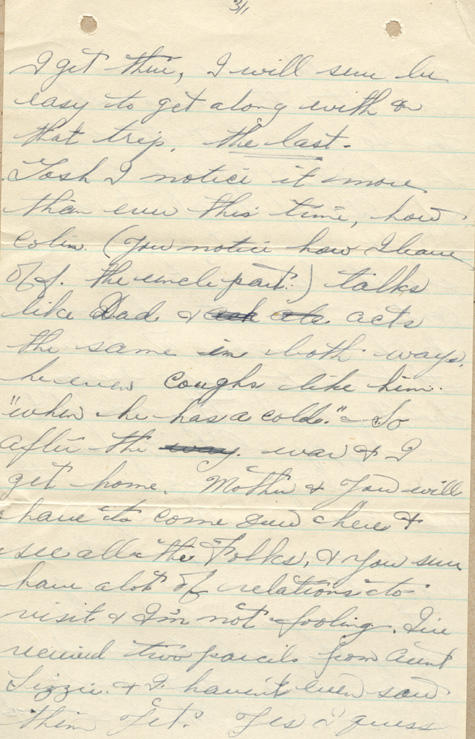 3/,
I get thin, I will sure be
easy to get along with on
that trip. the last.
Gosh I notice it more
then ever this time, how
Colin (you notice how I leave
off. the uncle part.) talks
like Dad & acts
the same in both ways.
he even coughs like him.
"when he has a cold." So
after the way. war & I
get home. Mother & you will
have to come over here &
see all the Folks, & you sure
have a lot of relations to
visit & I'm not fooling. I've
received two parcels from Aunt
Lizzie. & I haven't even saw
them yet. Yes I guess